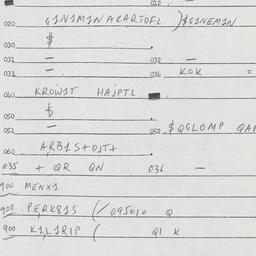 012.
020 G1N1M1NAKARTOFL )$G1NEM1N
030 $ .
031 — 032 —
033 — 034 KOK =
040 KROW1T HAJPTL
050 $ .
051 — 052 $QGLOMP QA
060 ARB1S+OJT+
035 + QR QN 036 —
900 MENX1
900 PERK81S (/095010 Q
900 K1L1RIP ( Q1 K